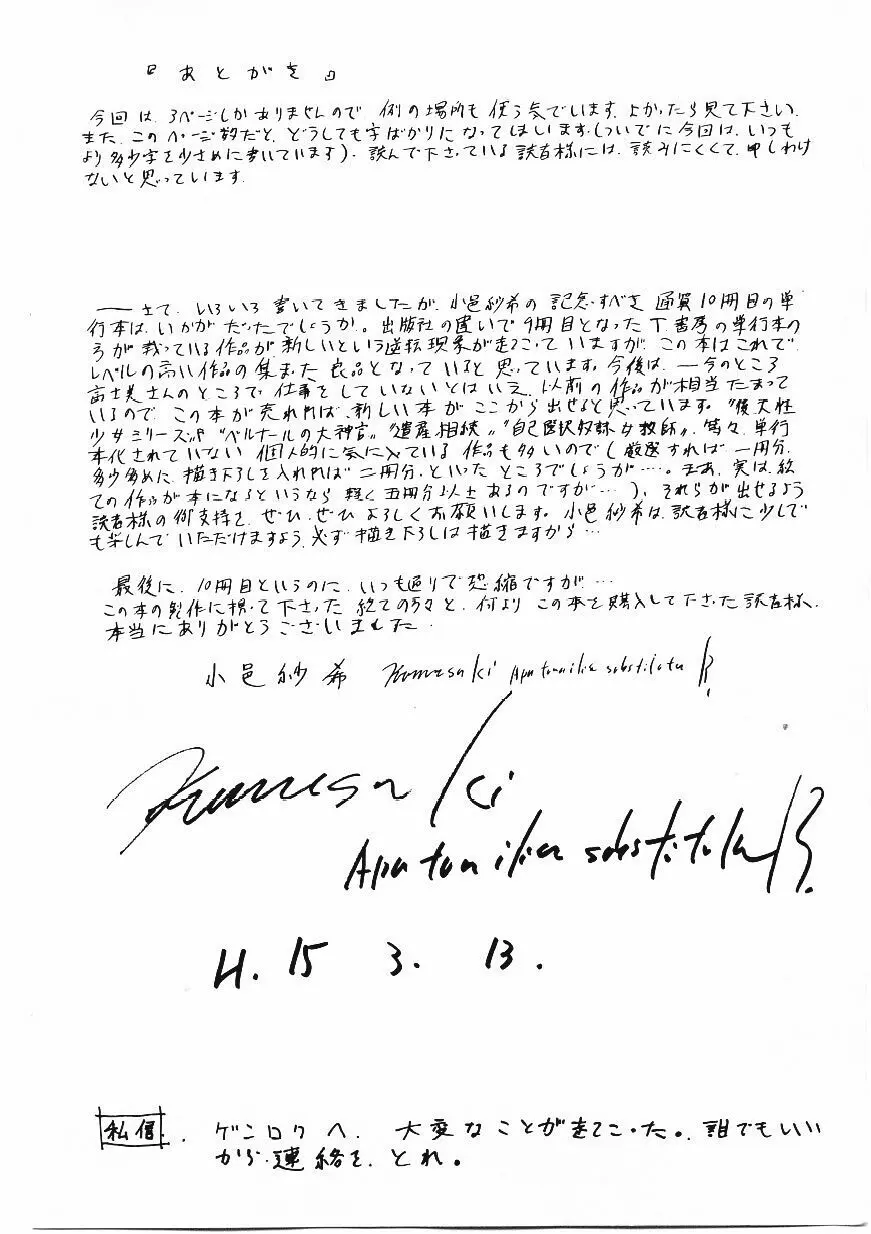 『あとがき』
今回は、3ページしかありませんので、例の場所も使う気でいます。よかったら見て下さい。
また、このページ数だと、どうしても字ばかりになってしまいます(ついでに今回は、いつも
より多少字を少さめに書いています)。読んで下さっている読者様には、読みにくくて、申しわけ
ないと思っています。
――さて、いろいろ書いてきましたが、小邑紗希の記念すべき通算10冊目の単
行本は、いかがだったでしょうか。出版社の違いで9冊目となったT書房の単行本の
方が載っている作品が新しいという逆転現象が起こっていますが、この本はこれで、
レベルの高い作品の集まった良品となっていると思っています。今後は、――今のところ
富士美さんのところで仕事をしていないとはいえ、以前の作品が相当たまって
いるので、この本が売れれば、新しい本がここから出せると思っています。〝後天性
少女ミリーズ〟〝ベルナールの大神官〟〝遺産相続〟〝自己選択奴隷女教師〟等々、単行
本化されていない個人的に気に入っている作品も多いのでし(厳選すれば一冊分、
多少多めに、描き下ろしを入れれば二冊分、といったところでしょうが…。まあ、実は、総
ての作品が本になるというなら軽く五冊分以上あるのですが…)、それらが出せるよう
読者様の御支持を、ぜひ、ぜひよろしくお願いします。小邑紗希は、読者様に少しで
も楽しんでいただけますよう、必ず描き下ろしは描きますから…
最後に、10冊目というのに、いつも通りで恐縮ですが…
この本の製作に携って下さった総ての方々と、何よりこの本を購入して下さった読者様、
本当にありがとうございました。
小邑紗希 Kumasaki Apatanilia substituta
Kumasaki
Apatanilia substituta
H.15 3. 13.
私信. ゲンロクへ、大変なことが起こった。誰でもいい
から連絡を、とれ。